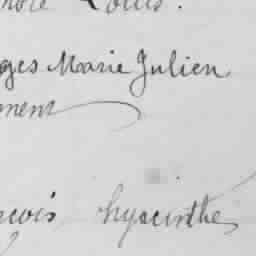 Louis.
ges Marie Julien
ment
cois hyacinthe